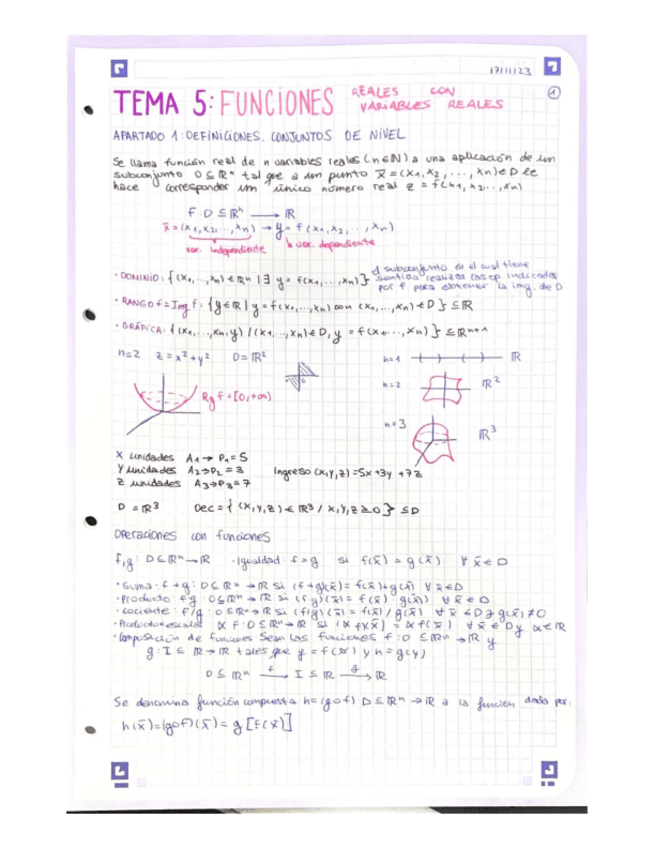 17/11/23
1
TEMA 5: FUNCIONES REALES CON
VARIABLES REALES
APARTADO 1: DEFINICIONES. CONJUNTOS DE NIVEL
Se llama función real de n variables reales (n∈ℕ) a una aplicación de un
subconjunto D⊆ℝⁿ tal que a un punto x̄=(x₁,x₂,...,xₙ)∈D le
hace corresponder un único número real z = f(x₁,x₂...,xₙ)
f: D⊆ℝⁿ → ℝ
x̄=(x₁,x₂...,xₙ) → y = f(x₁,x₂,..,xₙ)
var. independiente var. dependiente
· DOMINIO: {(x₁,...,xₙ)∈ℝⁿ | ∃ y = f(x₁,...,xₙ)} el subconjunto en el cual tiene
sentido realizar las op indicadas
por f para obtener la img. de D
· RANGO f = Img f: {y∈ℝ | y = f(x₁,...,xₙ) con (x₁,...,xₙ)∈D} ⊆ℝ
· GRÁFICA: {(x₁,...,xₙ,y) / (x₁,...,xₙ)∈D, y = f(x₁,...,xₙ)} ⊆ℝⁿ⁺¹
n=2 z=x²+y² D=ℝ²
n=1 ℝ
n=2 ℝ²
Rg f = [0,+∞)
n=3 ℝ³
X unidades A₁→P₁=5
Y unidades A₂→P₂=3 Ingreso (x,y,z)=5x+3y+7z
Z unidades A₃→P₃=7
D=ℝ³ Dec={(x,y,z)∈ℝ³ / x,y,z≥0} ⊆D
Operaciones con funciones
f,g: D⊆ℝⁿ→ℝ · Igualdad: f=g si f(x̄)=g(x̄) ∀ x̄∈D
· Suma: f+g: D⊆ℝⁿ→ℝ si (f+g)(x̄)=f(x̄)+g(x̄) ∀ x̄∈D
· Producto: f·g: D⊆ℝⁿ→ℝ si (f·g)(x̄)=f(x̄)·g(x̄) ∀ x̄∈D
· Cociente: f/g: D⊆ℝⁿ→ℝ si (f/g)(x̄)=f(x̄)/g(x̄) ∀ x̄∈D g(x̄)≠0
· Producto escalar α f: D⊆ℝⁿ→ℝ si (αf)(x̄)=αf(x̄) ∀ x̄∈D y α∈ℝ
· Composición de funciones Sean las funciones f: D⊆ℝⁿ→ℝ y
g: I⊆ℝ→ℝ tales que y=f(x̄) y h=g(y)
D⊆ℝⁿ f→ I⊆ℝ g→ ℝ
Se denomina función compuesta h=(g∘f) D⊆ℝⁿ→ℝ a la función dada por:
h(x̄)=(g∘f)(x̄)=g[f(x̄)]